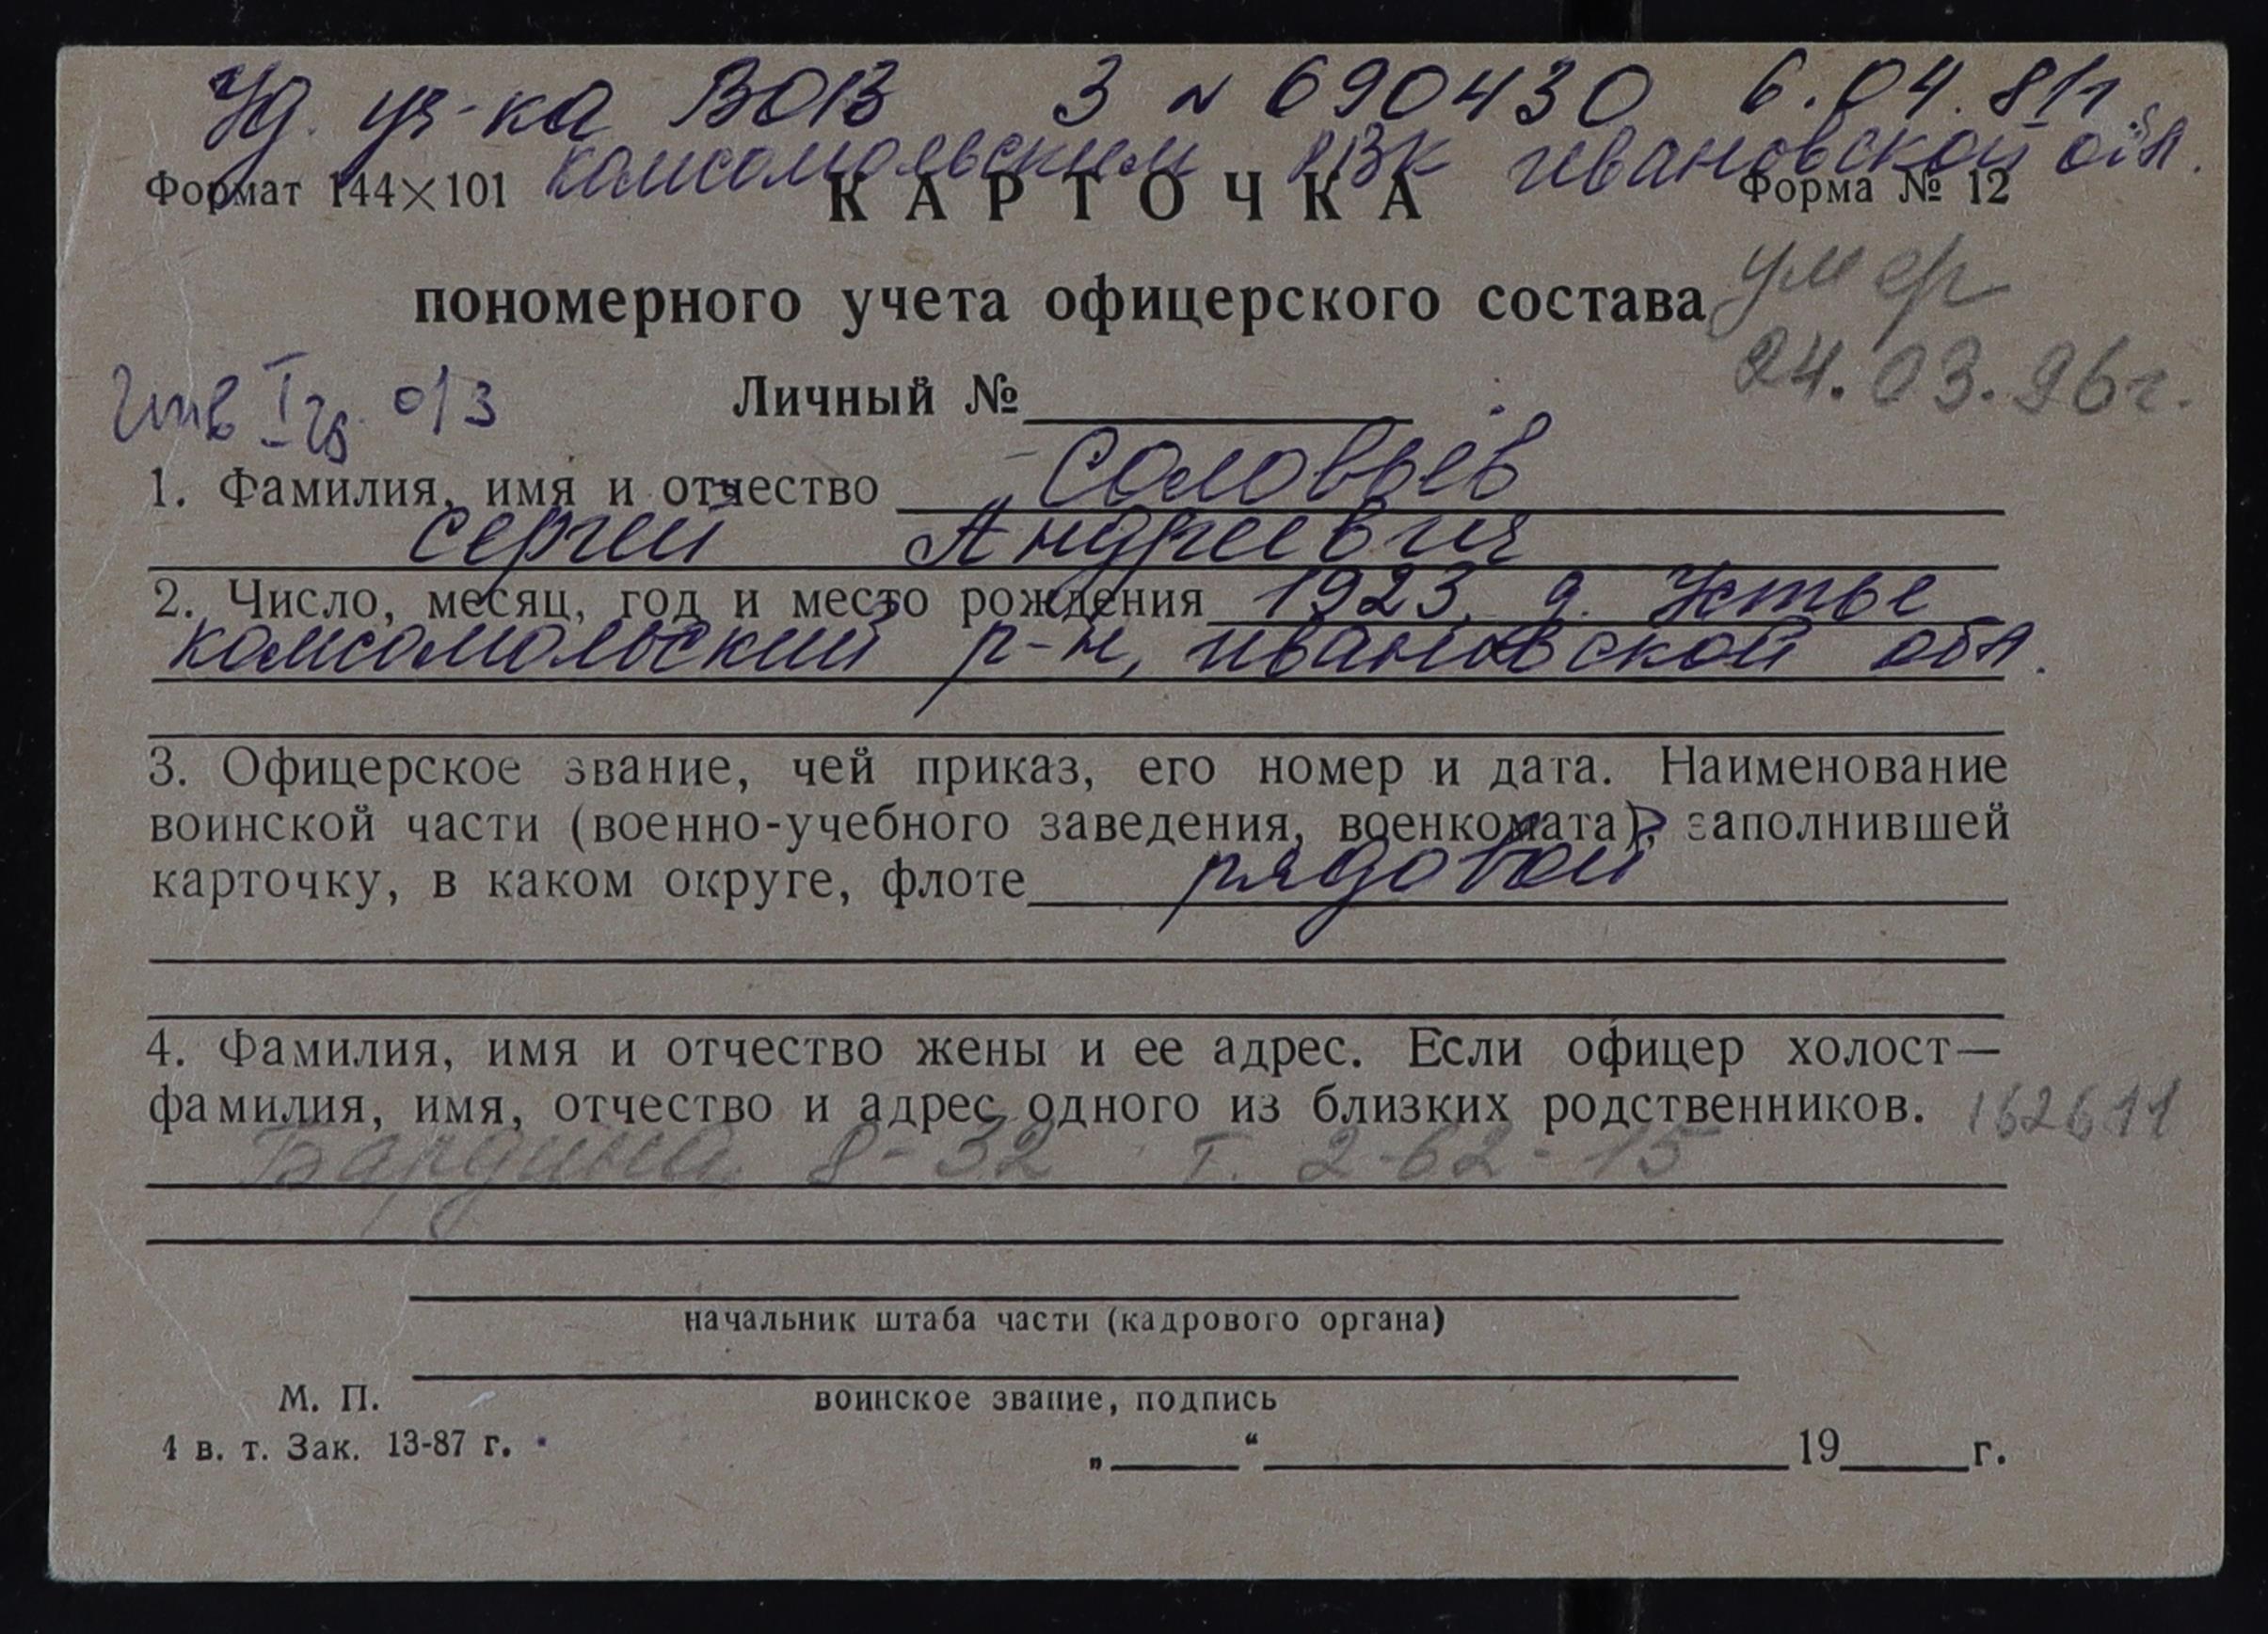 Уд. уч-ка ВОВ З № 690430 6.04.81г
комсомольским РВК ивановской обл.
Формат 144×101 КАРТОЧКА Форма № 12
пономерного учета офицерского состава
умер
24.03.96г.
Инв I гр. о/з
Личный №
1. Фамилия, имя и отчество Соловьёв
Сергей Андреевич
2. Число, месяц, год и место рождения 1923, д. Устье
комсомольский р-н, ивановской обл.
3. Офицерское звание, чей приказ, его номер и дата. Наименование
воинской части (военно-учебного заведения, военкомата), заполнившей
карточку, в каком округе, флоте рядовой
4. Фамилия, имя и отчество жены и ее адрес. Если офицер холост—
фамилия, имя, отчество и адрес одного из близких родственников. 162611
Бардина 8-32 т. 2-62-15
начальник штаба части (кадрового органа)
М. П.
воинское звание, подпись
4 в. т. Зак. 13-87 г.
„ “ 19 г.